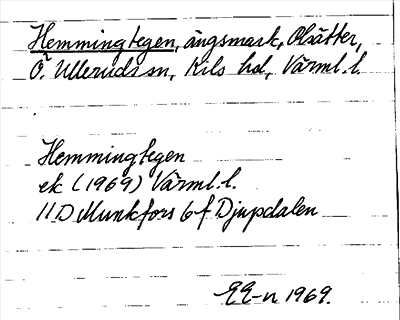 Hemmingtegen, ängsmark, Olsätter,
Ö. Ullerud sn, Kils hd, Värml. l.
Hemmingtegen
ek (1969) Värml. l.
11D Munkfors 6f Djupdalen
EE-n 1969.